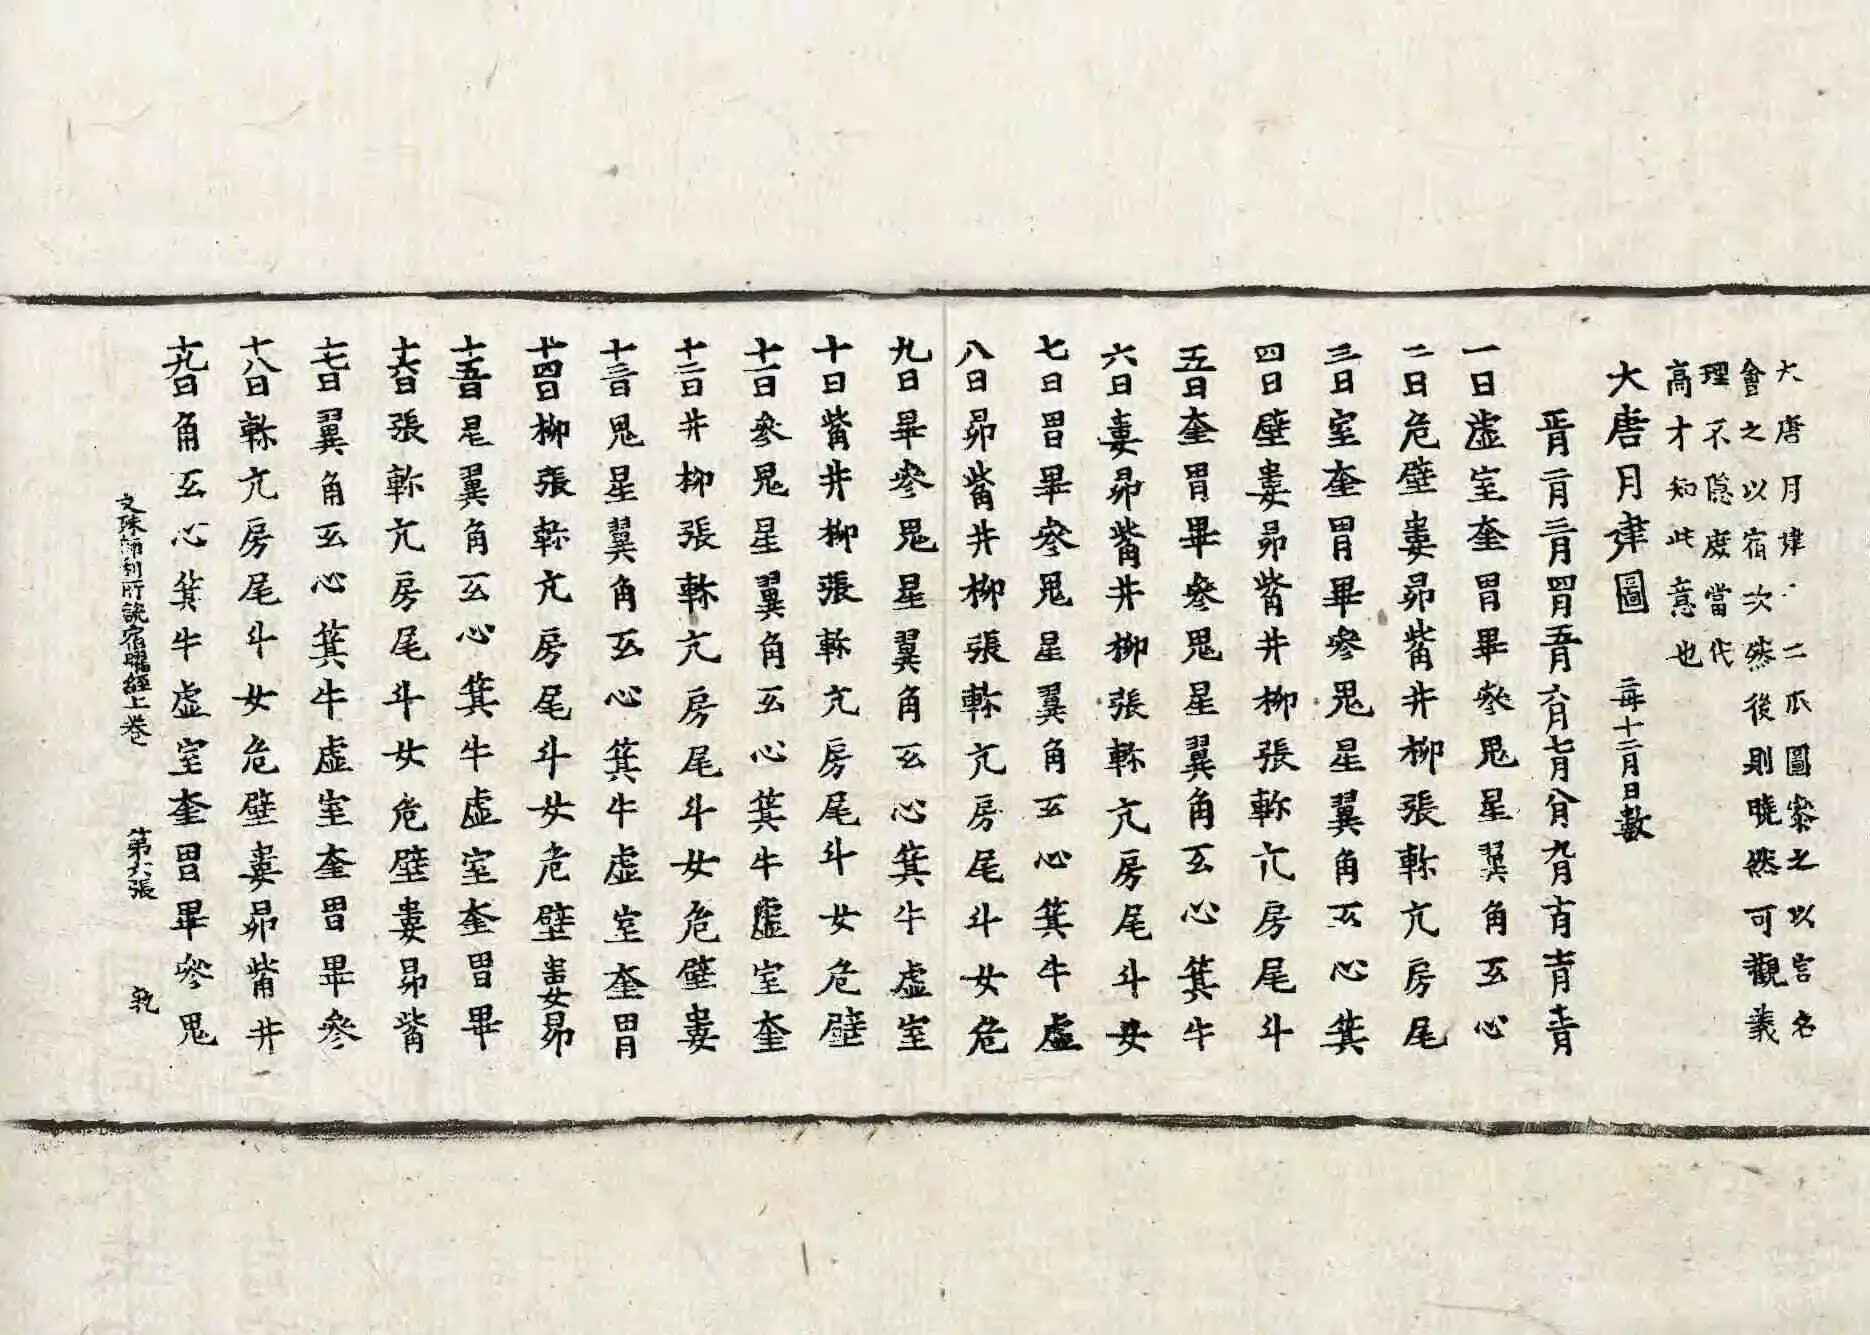 大唐月建二爪圖黎之以言名
會之以宿次然後則曉然可觀義
理不隱庶當代
高才知此意也
大唐月建圖 一年十二月日數
正月二月三月四月五月六月七月八月九月十月十一月十二月
一日虛室奎胃畢參鬼星翼角氐心
二日危壁婁昴觜井柳張軫亢房尾
三日室奎胃畢參鬼星翼角氐心箕
四日壁婁昴觜井柳張軫亢房尾斗
五日奎胃畢參鬼星翼角氐心箕牛
六日婁昴觜井柳張軫亢房尾斗女
七日胃畢參鬼星翼角氐心箕牛虛
八日昴觜井柳張軫亢房尾斗女危
九日畢參鬼星翼角氐心箕牛虛室
十日觜井柳張軫亢房尾斗女危壁
十一日參鬼星翼角氐心箕牛虛室奎
十二日井柳張軫亢房尾斗女危壁婁
十三日鬼星翼角氐心箕牛虛室奎胃
十四日柳張軫亢房尾斗女危壁婁昴
十五日星翼角氐心箕牛虛室奎胃畢
十六日張軫亢房尾斗女危壁婁昴觜
十七日翼角氐心箕牛虛室奎胃畢參
十八日軫亢房尾斗女危壁婁昴觜井
十九日角氐心箕牛虛室奎胃畢參鬼
文殊師利所說宿曜經上卷 第六張